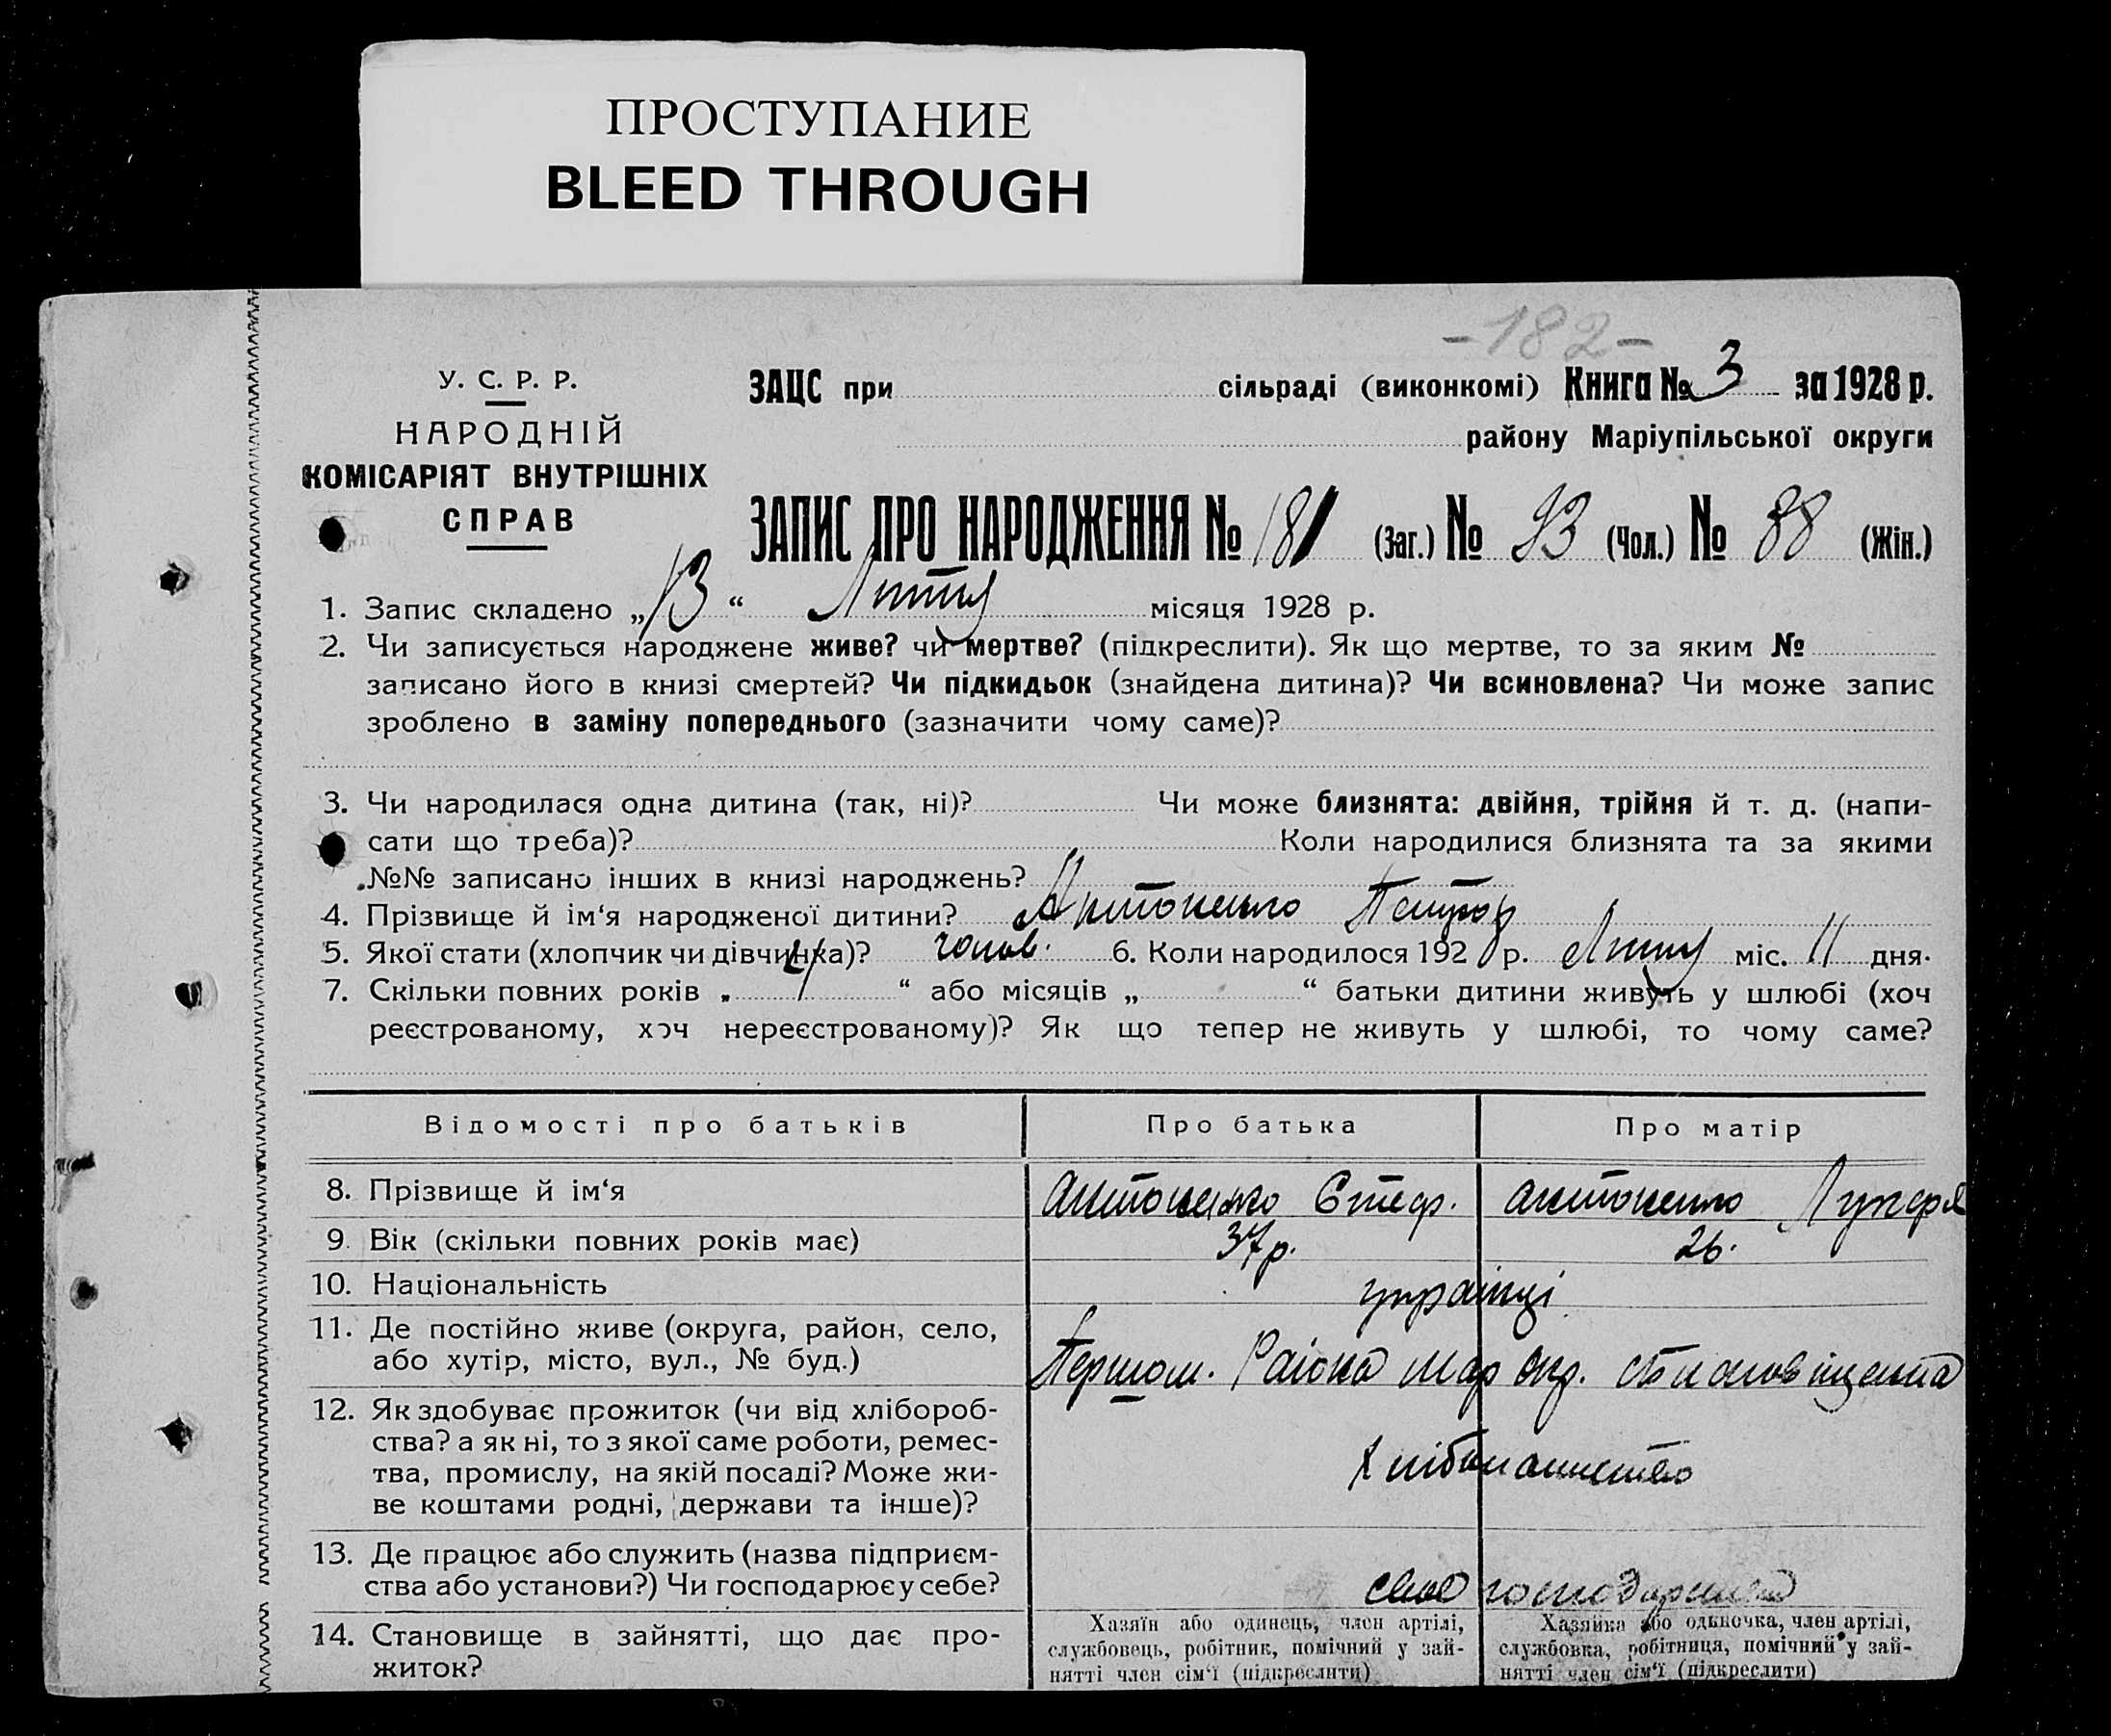 ПРОСТУПАНИЕ
BLEED THROUGH
-182-
У. С. Р. Р.
НАРОДНІЙ
КОМІСАРІЯТ ВНУТРІШНІХ
СПРАВ
ЗАЦС при сільраді (виконкомі) Книга № 3 за 1928 р.
району Маріупільської округи
ЗАПИС ПРО НАРОДЖЕННЯ № 181 (Заг.) № 93 (Чол.) № 88 (Жін.)
1. Запис складено „13“ Лютий місяця 1928 р.
2. Чи записується народжене живе? чи мертве? (підкреслити). Як що мертве, то за яким №
записано його в книзі смертей? Чи підкидьок (знайдена дитина)? Чи всиновлена? Чи може запис
зроблено в заміну попереднього (зазначити чому саме)?
3. Чи народилася одна дитина (так, ні)? Чи може близнята: двійня, трійня й т. д. (напи-
сати що треба)? Коли народилися близнята та за якими
№№ записано інших в книзі народжень?
4. Прізвище й ім‘я народженої дитини? Антоненко
5. Якої стати (хлопчик чи дівчинка)? чолов. 6. Коли народилося 1928 р. Лютий міс. 11 дня.
7. Скільки повних років „ 4 “ або місяців „ “ батьки дитини живуть у шлюбі (хоч
реєстрованому, хоч нереєстрованому)? Як що тепер не живуть у шлюбі, то чому саме?
Відомості про батьків Про батька Про матір
8. Прізвище й ім‘я Антоненко Стеф. Антоненко
9. Вік (скільки повних років має) 37 р. 26.
10. Національність українці
11. Де постійно живе (округа, район, село,
або хутір, місто, вул., № буд.) Першом. Району Мар окр.
12. Як здобуває прожиток (чи від хлібороб-
ства? а як ні, то з якої саме роботи, ремес-
тва, промислу, на якій посаді? Може жи-
ве коштами родні, держави та інше)?
13. Де працює або служить (назва підприєм-
ства або установи?) Чи господарює у себе? свое
14. Становище в зайнятті, що дає про-
житок?
Хазяїн або одинець, член артілі,
службовець, робітник, помічний у зай-
нятті член сім‘ї (підкреслити)
Хазяйка або одьночка, член артілі,
службовка, робітниця, помічний у зай-
нятті член сім‘ї (підкреслити)